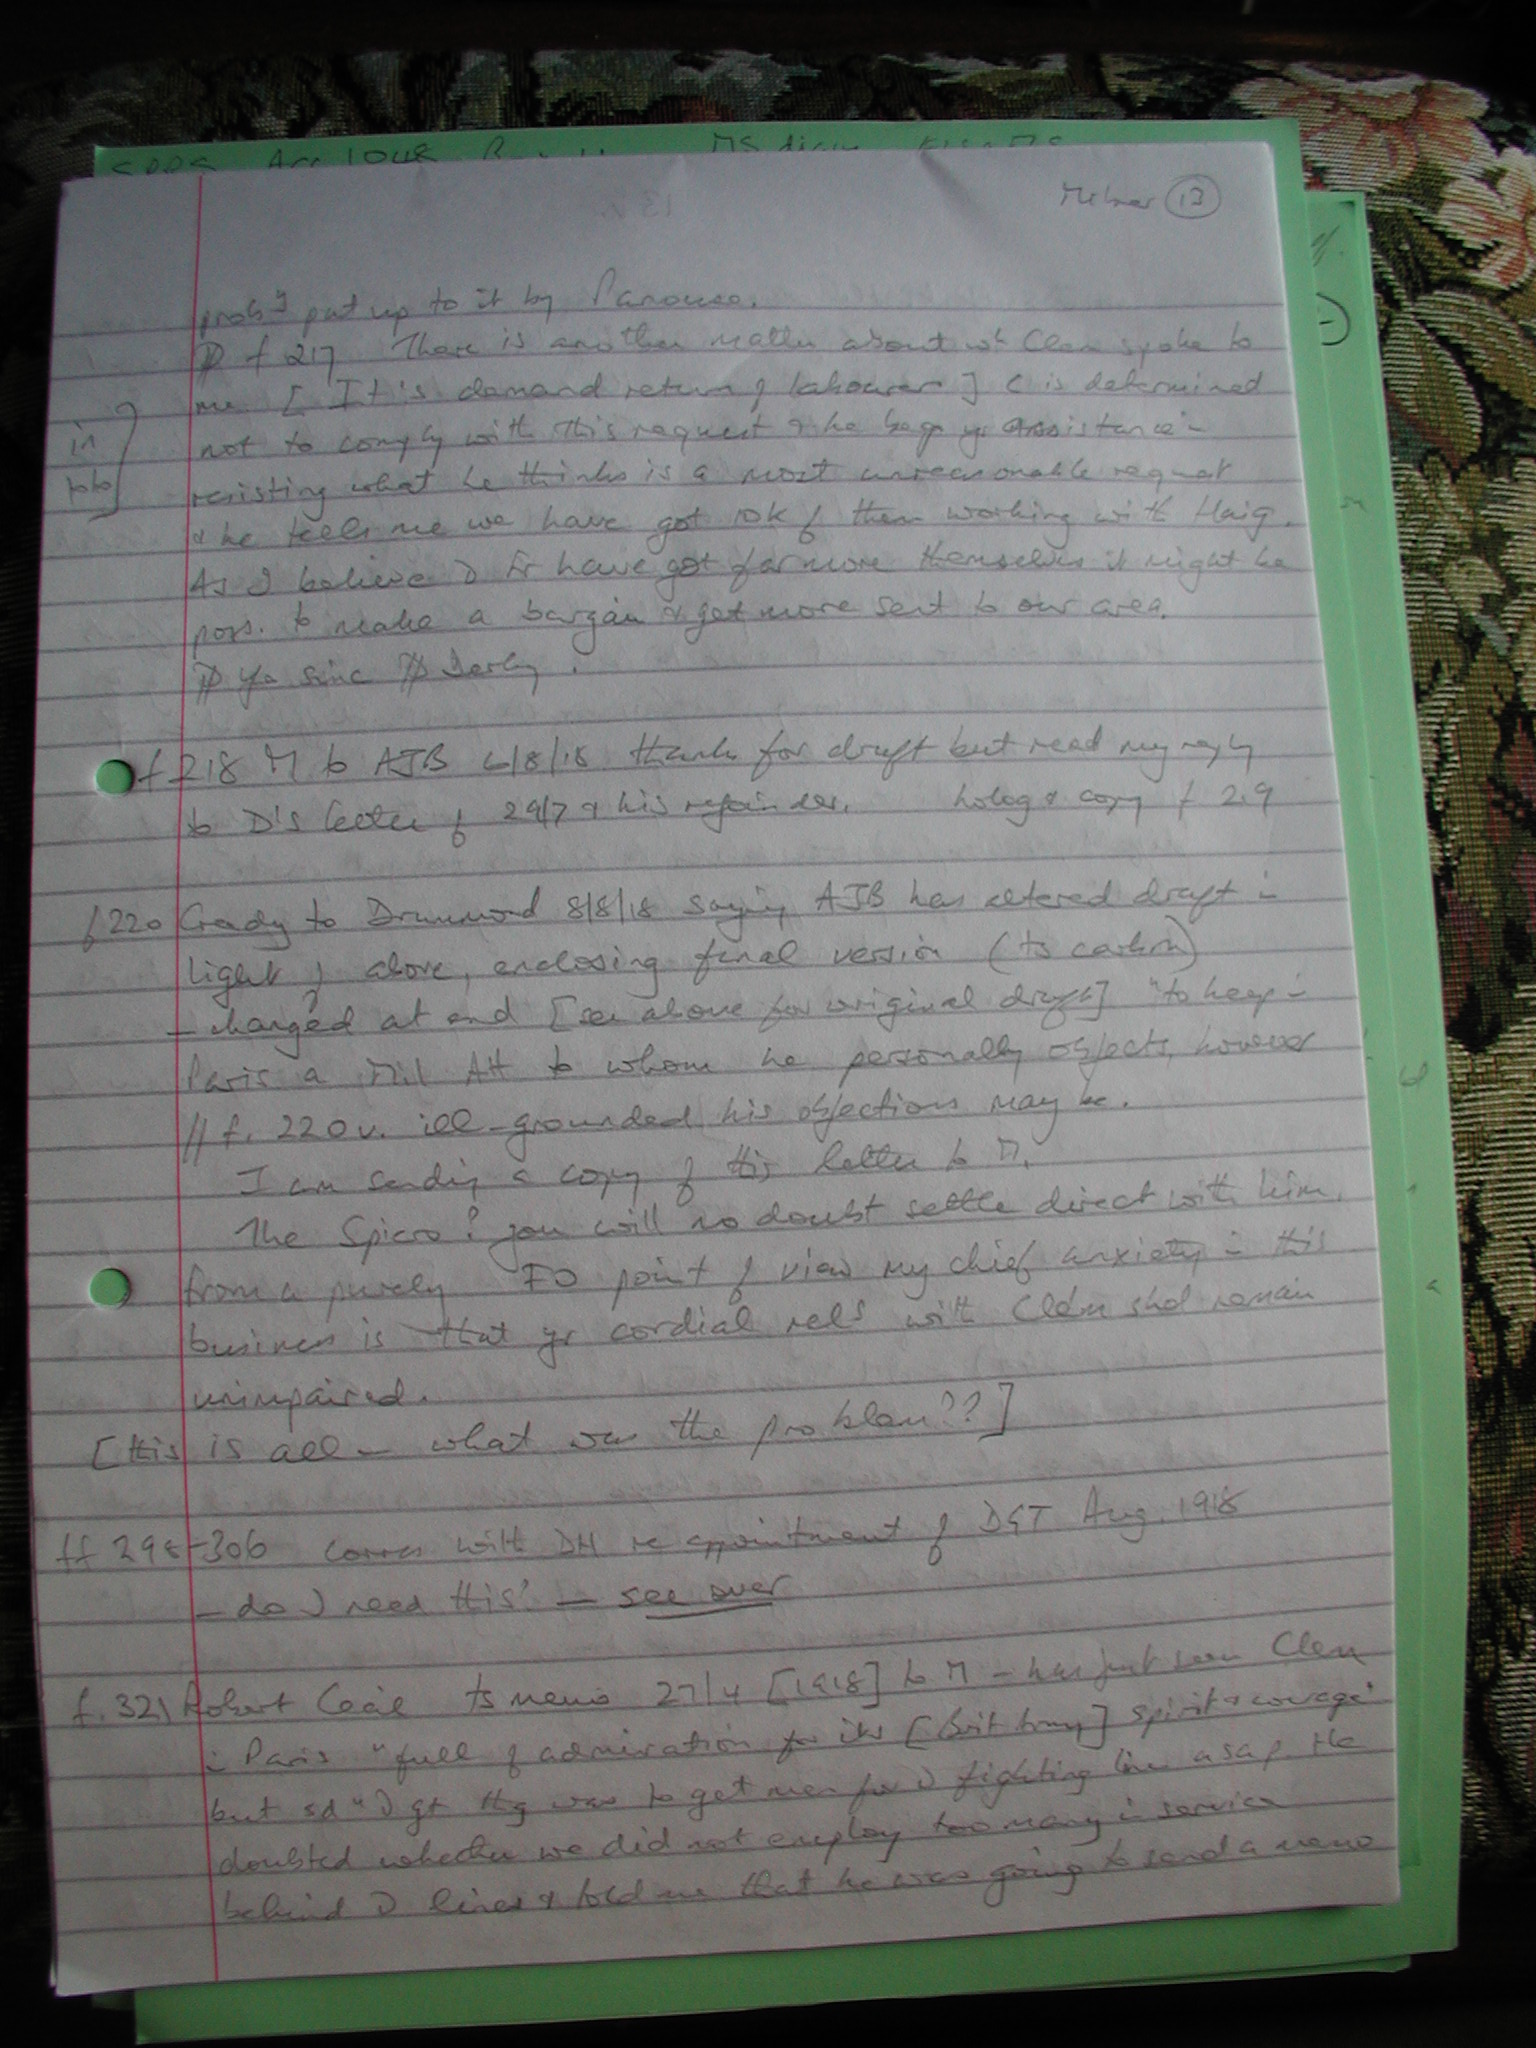 Milner 13
prob^y put up to it by Panouse.
f 217 There is another matter about wh Clem spoke to
me [It's demand return of labourer] C is determined
not to comply with this request & he begs yr assistance in
resisting what he thinks is a most unreasonable request
& he tells me we have got 10k of them working with Haig.
in
toto
As I believe Fr have got far more themselves it might be
poss. to make a bargain & get more sent to our area.
Yrs sinc Derby.
f 218 M to AJB 6/8/18 thanks for draft but read my reply
to D's letter of 29/7 & his holog & copy f 219
f220 Grady to Drummond 8/8/18 saying AJB has altered draft in
light of above, enclosing final version (ts carbon)
- changed at end [see above for original draft] "to keep in
Paris a Mil Att to whom he personally objects, however
// f. 220v. ill-grounded his objections may be.
I am sending a copy of this letter to M.
The Spiers? you will no doubt settle direct with him.
From a purely FO point of view my chief anxiety in this
business is that yr cordial rels with Clem shd remain
unimpaired.
[this is all - what was the problem??]
ff 298-306 corres with DH re appointment of DGT Aug. 1918
- do I need this? - see over
f. 321 Robert Cecil ts memo 27/4 [1918] to M - has just seen Clem
in Paris "full of admiration for its [Brit Army] spirit & courage"
but sd " gt thg was to get men for fighting line asap. He
doubted whether we did not employ too many in service
behind lines & told me that he was going to send a memo